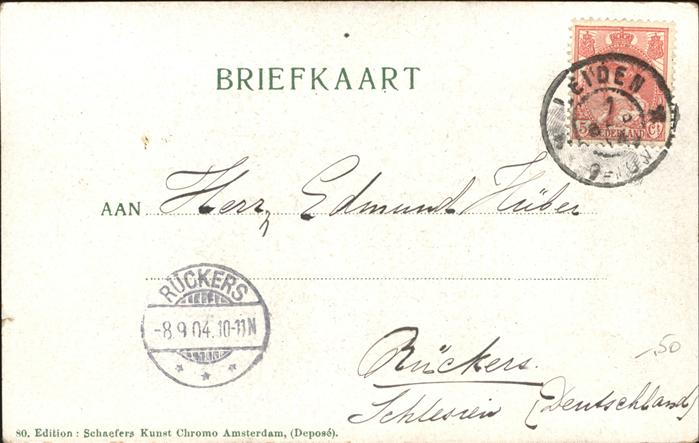 BRIEFKAART
LEIDEN
5 Ct
NEDERLAND
AAN Herrn Edmund Hüber
RÜCKERS
-8.9 04.10-11N
Rückers.
Schlesien (Deutschland)
.50
80. Edition : Schaefers Kunst Chromo Amsterdam, (Deposé).